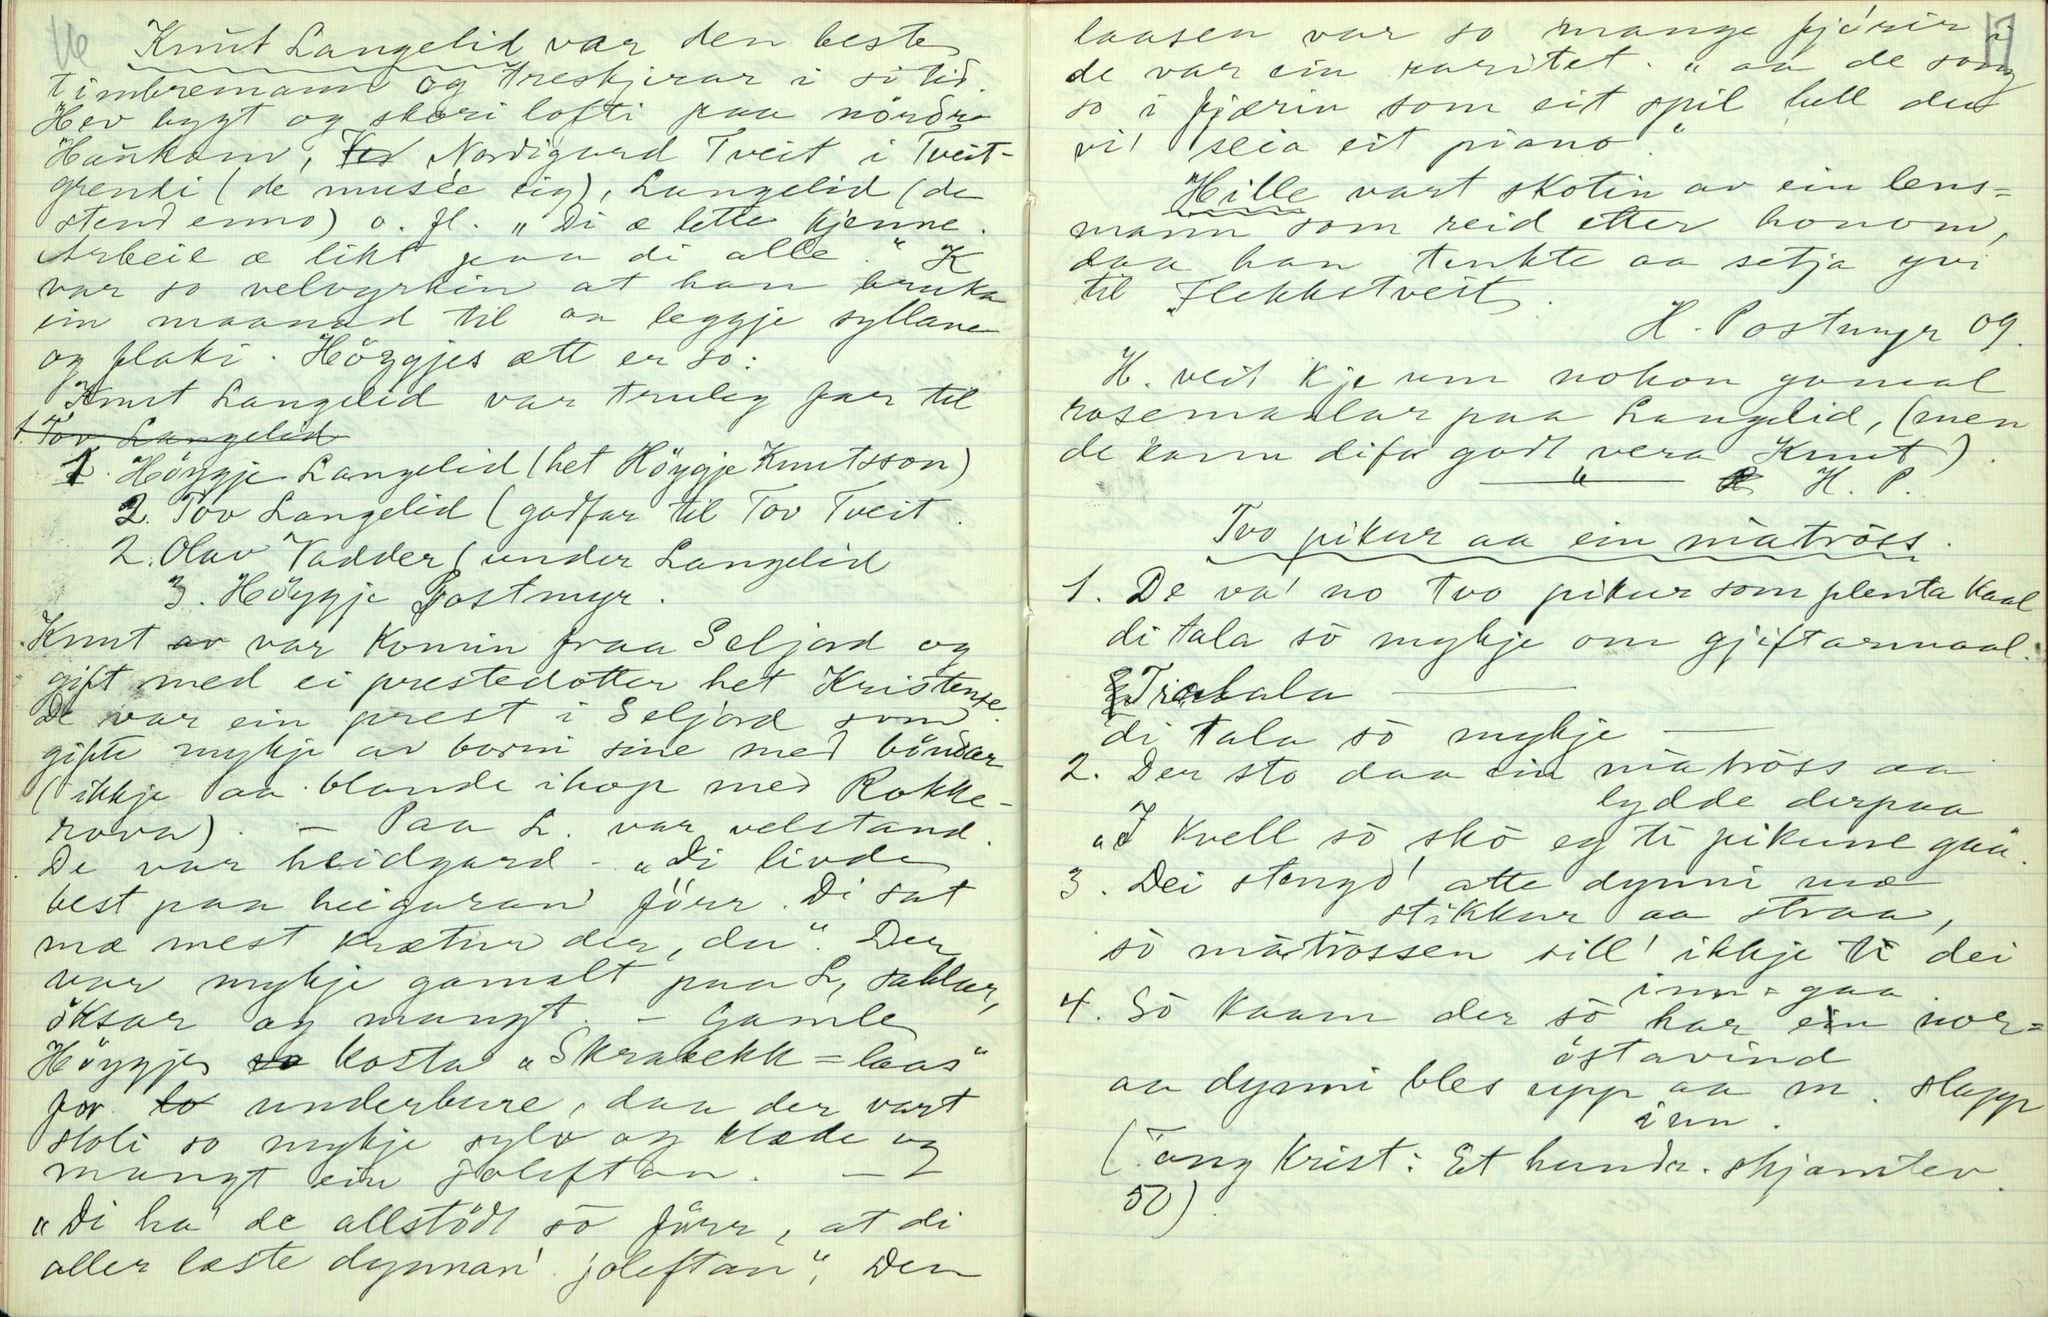 16
Knut Langelid var den beste
timbremann og treskjerar i si tid.
Hev bygt og skori lofti paa nördre
Haukom, Nordigard Tveit i Tveit-
grendi (de musée eig), Langelid (de
stend enno) o. fl. „Di æ lette kjenne.
Arbeie æ likt paa di alle." K
var so velvyrkin at han bruka
ein maanad til aa leggje syllane
og flaki. Höygjes ætt er so:
Knut Langelid var truleg far til
1. Tov Langelid
1. Höygje Langelid (het Höygje Knutsson)
2. Tov Langelid (godfar til Tov Tveit.
2. Olav Vadder (under Langelid
3. Höygje Postmyr.
Knut av var komin fraa Seljord og
gift med ei prestedotter het Kristense.
De var ein prest i Seljord som
gifte mykje av borni sine med böndar
(ikkje aa blande ihop med Rokke-
rova). – Paa L. var velstand.
De var heidgard – „Di livde
best paa heigaran' förr. Di sat
mæ mest krætur der, du". Der
var mykje gamalt paa L, sablar,
öksar og mangt. – Gamle
Höygje so kosta „Skrabekk=laas"
for to underbure, daa der vart
stoli so mykje sylv og klæde og
mangt ein joleftan. —
„Di ha' de allstödt sö förr, at di
aller læste dynnan' joleftan", Den
17
laasen var so mange fjörir i
de var ein raritet. „aa de song
so i fjærin som eit spil hell du
vi' seia eit piano."
Hille vart skotin av ein lens=
mann som reid etter honom,
daa han tenkte aa setja yvi
til Flekkstveit.
H. Postmyr og.
H. veit kje um nokon gamal
rosemaalar paa Langelid, (men
de kann difor godt vera Knut).
—"— H. P.
Tvo pikur aa ein màtröss.
1. De va' no tvo pikur som plenta kaal
di tala sö mykje om gjiftarmaal.
Tralala ———
di tala sö mykje —
2. Der sto daa ein màtröss aa
lydde derpaa
„I kvell sö skö eg te pikune gaa.
3. Dei stengd' atte dynni mæ
stikkur aa straa,
sö màtrössen sill' ikkje te dei
inn=gaa.
4. Sö kaam der sö har ein nor=
östavind
aa dynni bles upp aa m. slapp
inn.
(Tong Krist: Et hundr. skjæmtev.
50)